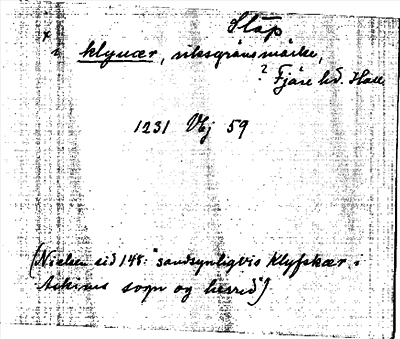 Stáp
x i klynær, riksgränsmärke,
? Fjäre hd. Hall
1231 Vhj 59
(Nielsen sid 148: "sandsynligvis Klyfskær i
Askims sogn og herred").